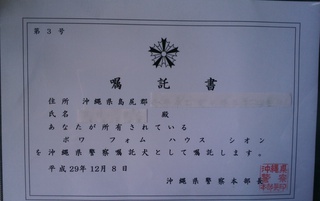 第3号
嘱託書
住所 沖縄県島尻郡
氏名 殿
あなたが所有されている
ボワ フォム ハウス シオン
を沖縄県警察嘱託犬として嘱託します。
平成29年12月8日
沖縄県警察本部長